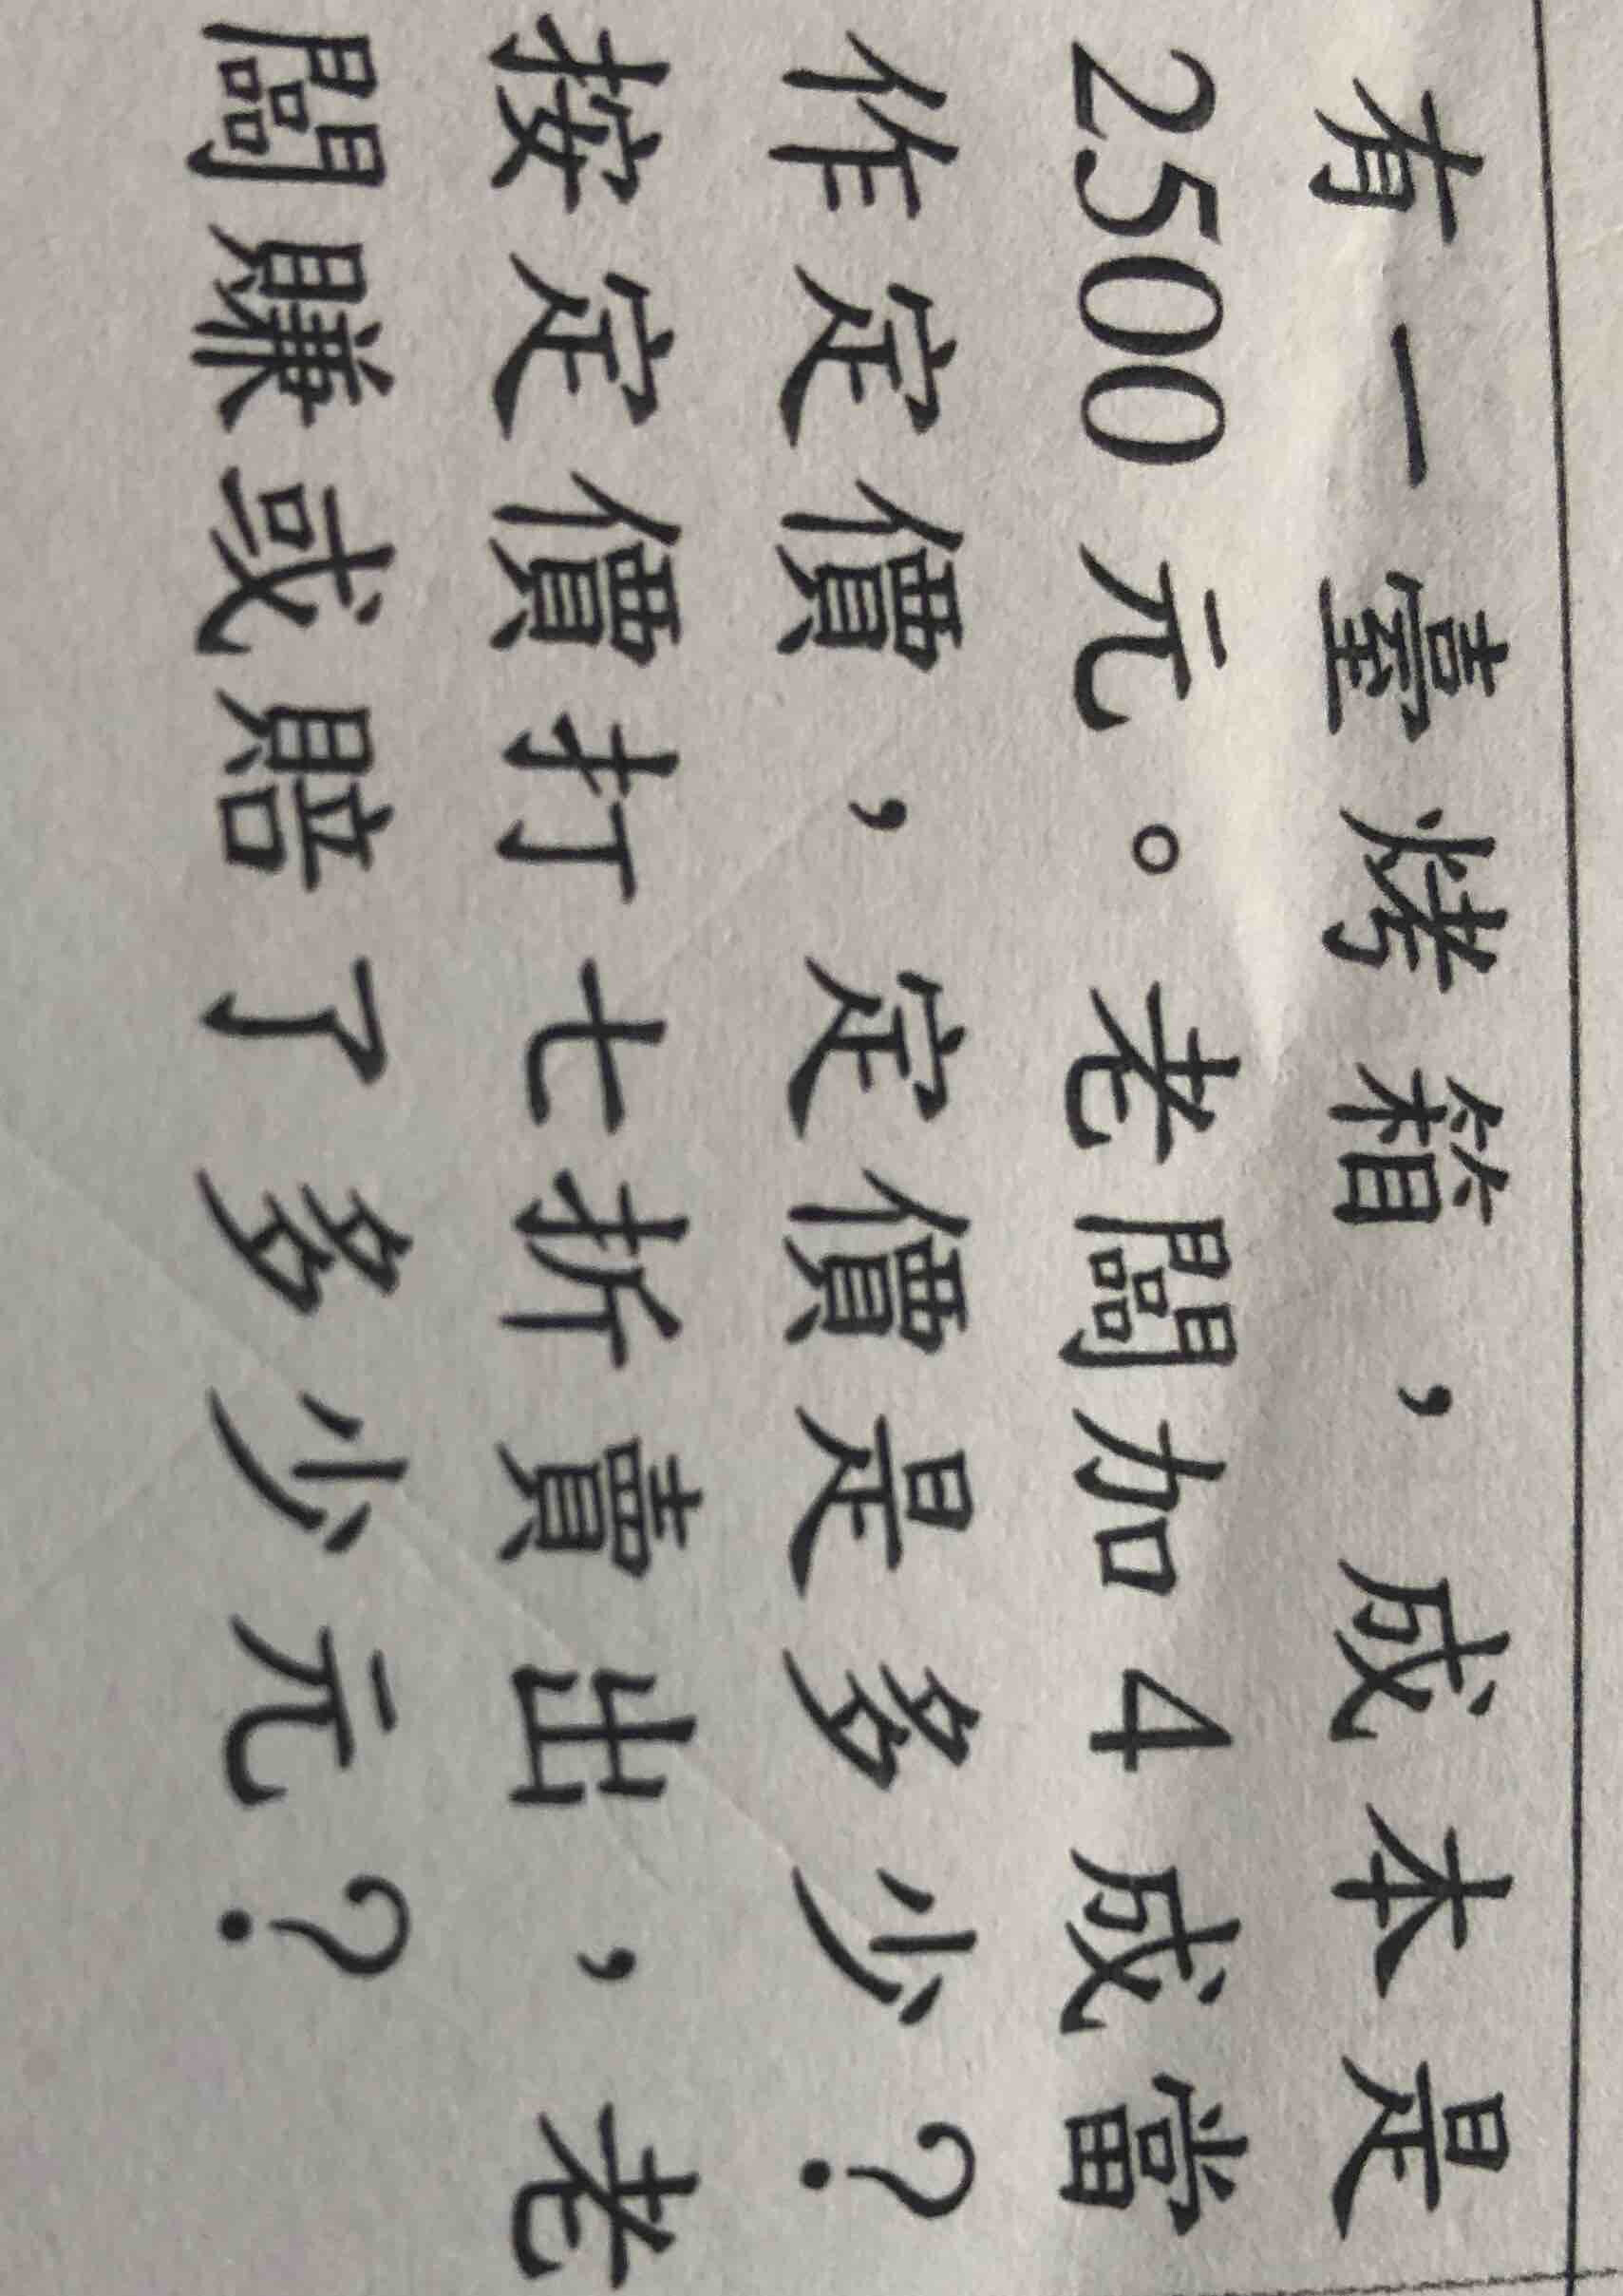 有一臺烤箱，成本是
2500元。老闆加4成當
作定價，定價是多少？
按定價打七折賣出，老
闆賺或賠了多少元？